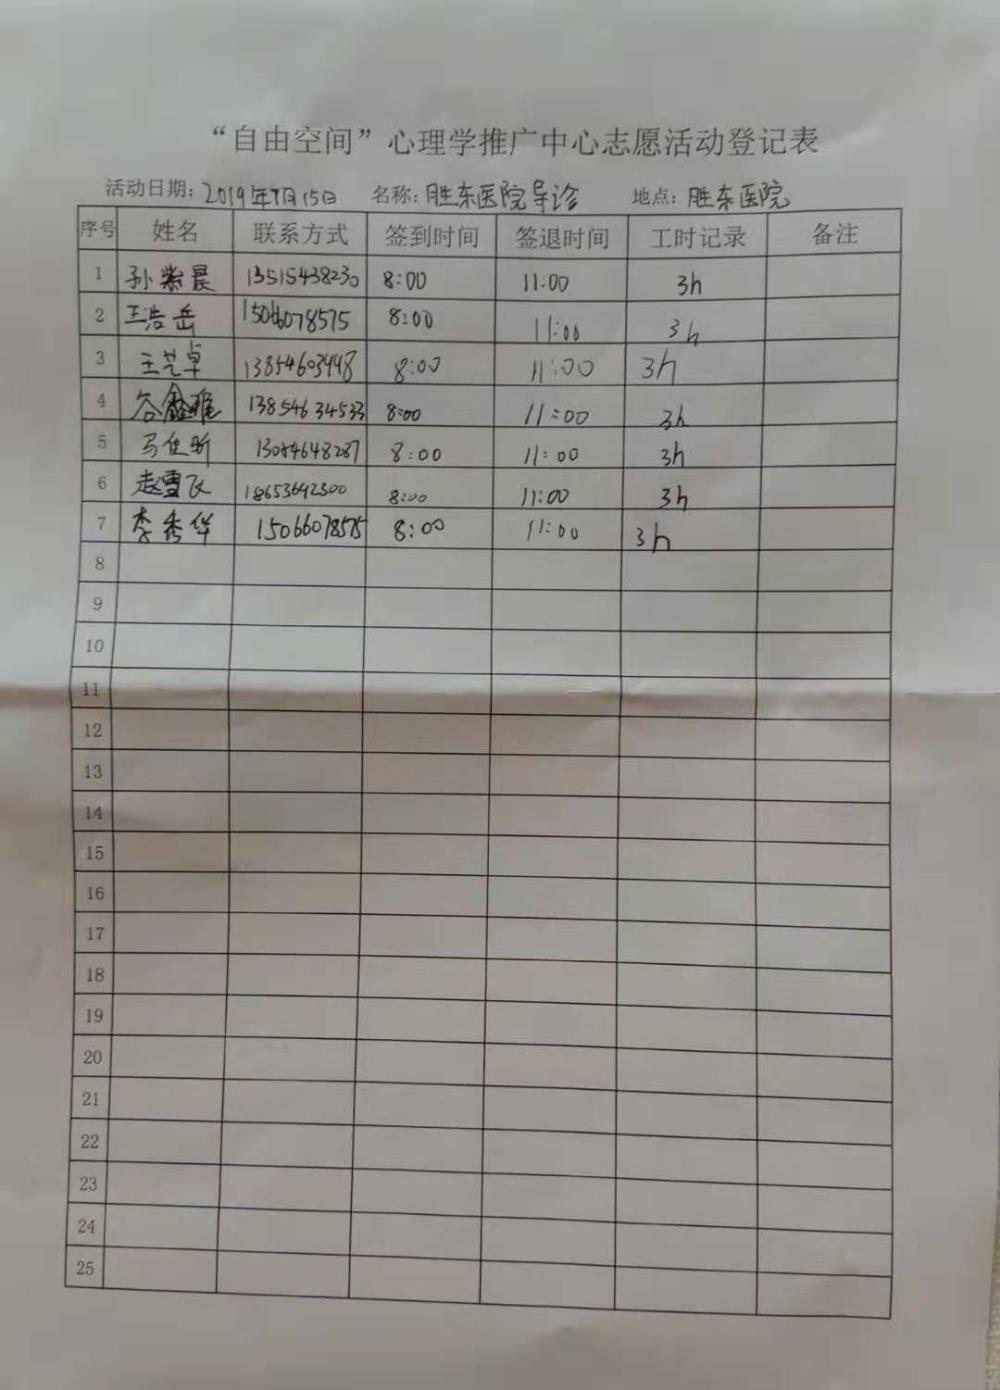 “自由空间”心理学推广中心志愿活动登记表
活动日期：2019年7月15日 名称：胜东医院导诊 地点：胜东医院
序号 姓名 联系方式 签到时间 签退时间 工时记录 备注
1 孙紫晨 13515438230 8:00 11:00 3h
2 王浩岳 15066078575 8:00 11:00 3h
3 王艺卓 13854603448 8:00 11:00 3h
4 谷鑫雅 13854634533 8:00 11:00 3h
5 马佳昕 13084648287 8:00 11:00 3h
6 赵雪飞 18653642300 8:00 11:00 3h
7 李秀华 15066078575 8:00 11:00 3h
8
9
10
11
12
13
14
15
16
17
18
19
20
21
22
23
24
25